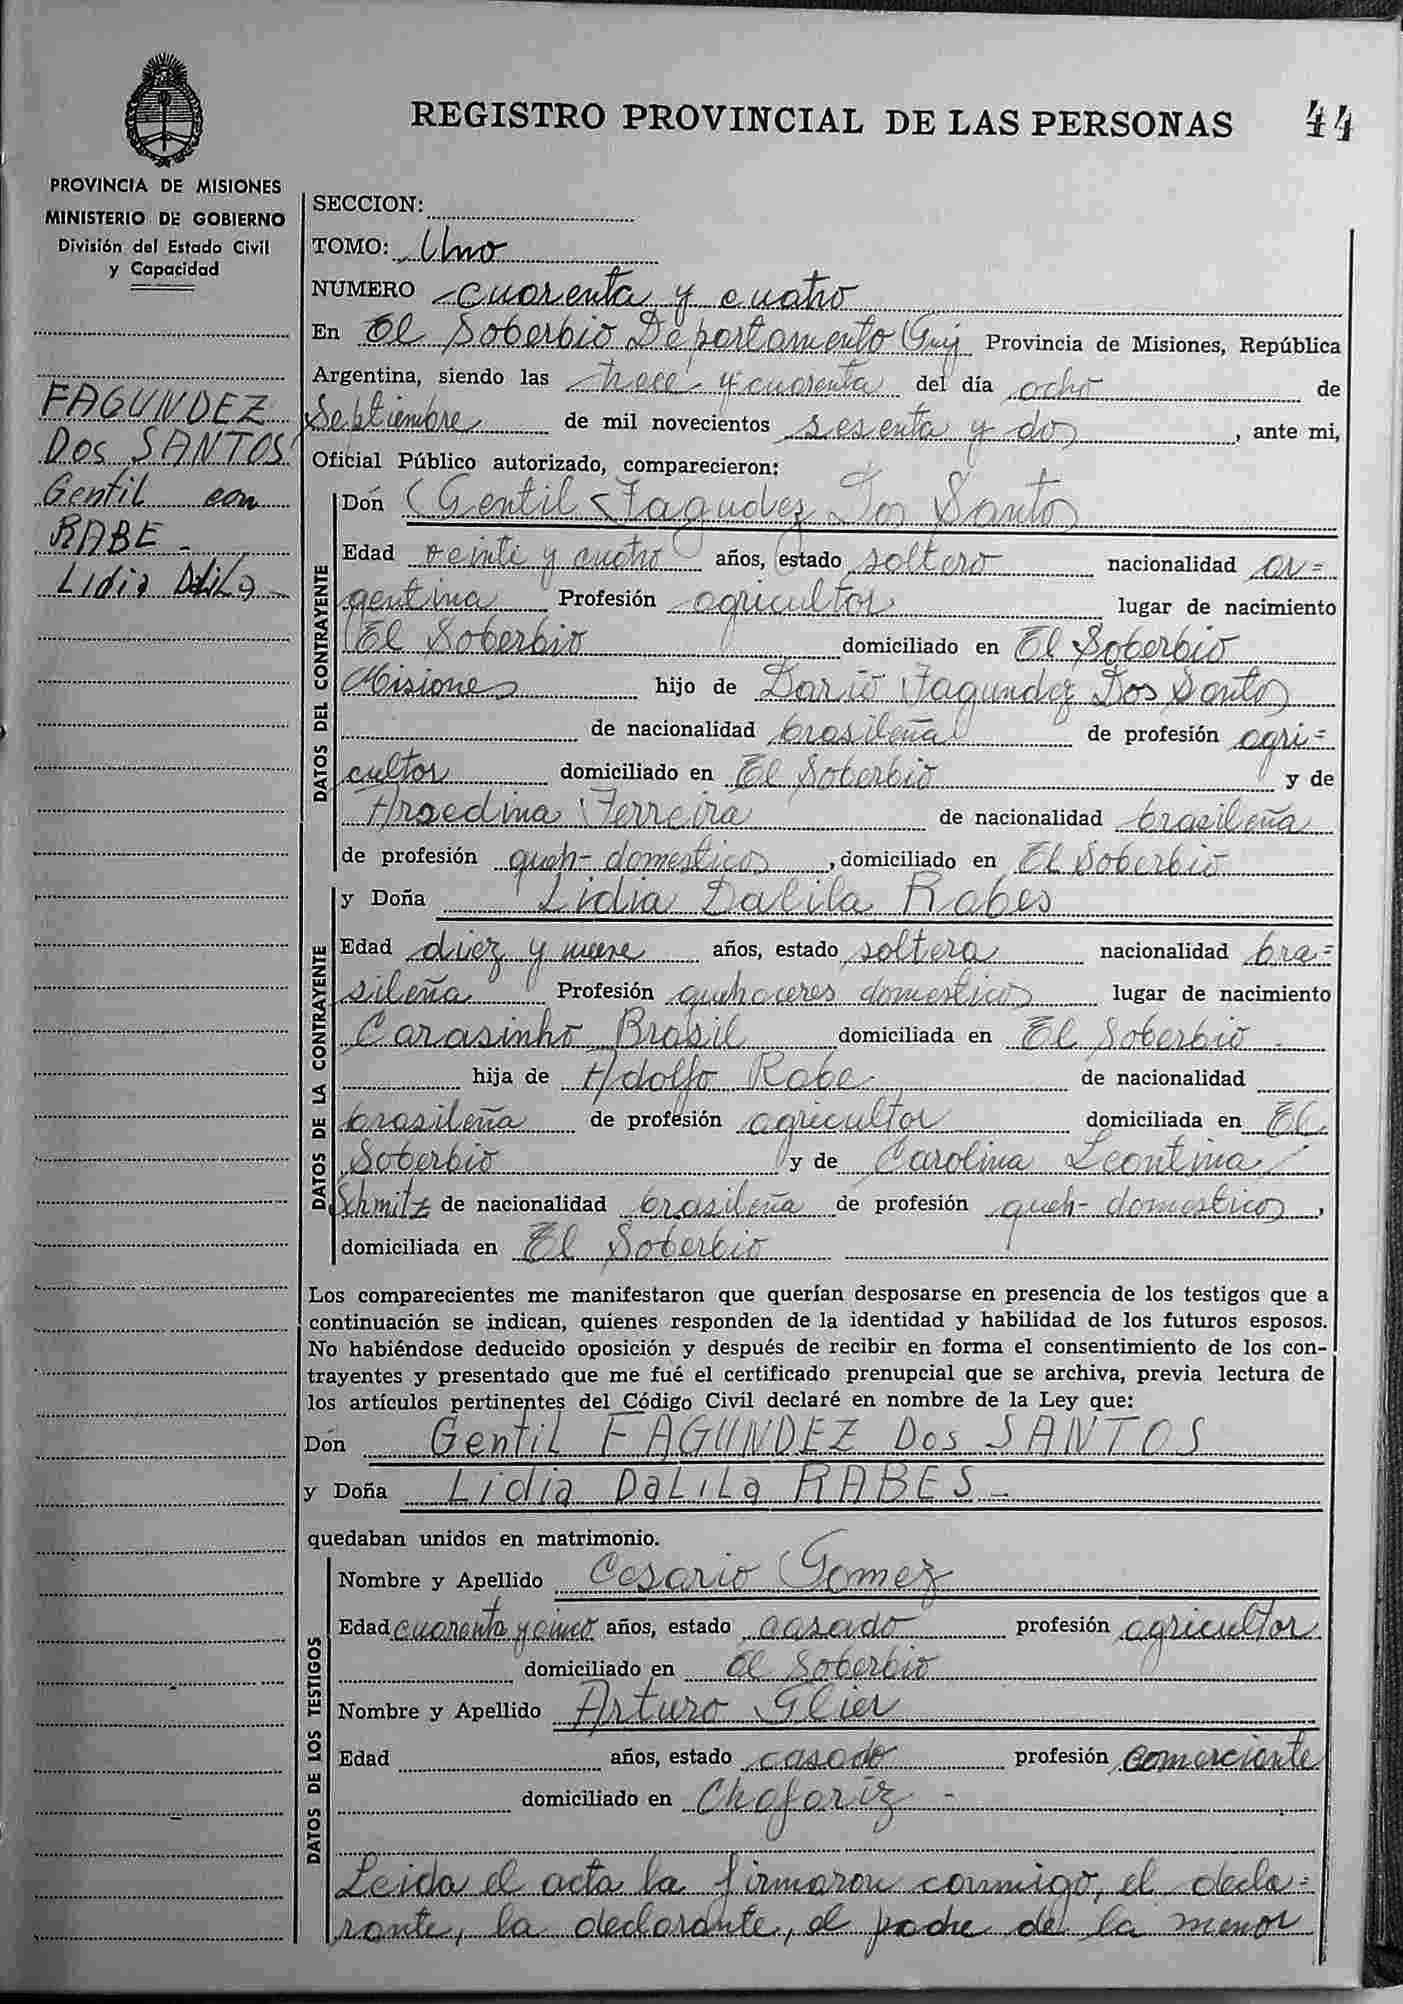 REGISTRO PROVINCIAL DE LAS PERSONAS 44
PROVINCIA DE MISIONES
MINISTERIO DE GOBIERNO
División del Estado Civil
y Capacidad
FAGUNDEZ
Dos SANTOS
Gentil con
RABE -
Lidia DaLiLa -
SECCION:
TOMO: Uno
NUMERO cuarenta y cuatro
En El Soberbio Departamento Guj Provincia de Misiones, República
Argentina, siendo las trece y cuarenta del día ocho de
Septiembre de mil novecientos sesenta y dos, ante mi,
Oficial Público autorizado, comparecieron:
DATOS DEL CONTRAYENTE
Don Gentil Fagudez Dos Santos
Edad veinti y cuatro años, estado soltero nacionalidad ar=
gentina Profesión agricultor lugar de nacimiento
El Soberbio domiciliado en El Soberbio
Misiones hijo de Dario Fagundez Dos Santos
de nacionalidad brasileña de profesión agri=
cultor domiciliado en El Soberbio y de
Ferreira de nacionalidad brasileña
de profesión queh- domesticos, domiciliado en El Soberbio
DATOS DE LA CONTRAYENTE
y Doña Lidia Dalila Rabes
Edad diez y nueve años, estado soltera nacionalidad bra=
sileña Profesión quehaceres domesticos lugar de nacimiento
Carasinho Brasil domiciliada en El Soberbio -
hija de Adolfo Rabe de nacionalidad
brasileña de profesión agricultor domiciliada en El
Soberbio y de Carolina Leontina
Schmitz de nacionalidad brasileña de profesión queh- domesticos,
domiciliada en El Soberbio
Los comparecientes me manifestaron que querían desposarse en presencia de los testigos que a
continuación se indican, quienes responden de la identidad y habilidad de los futuros esposos.
No habiéndose deducido oposición y después de recibir en forma el consentimiento de los con-
trayentes y presentado que me fué el certificado prenupcial que se archiva, previa lectura de
los artículos pertinentes del Código Civil declaré en nombre de la Ley que:
Don Gentil FAGUNDEZ Dos SANTOS
y Doña Lidia DaLiLa RABES -
quedaban unidos en matrimonio.
DATOS DE LOS TESTIGOS
Nombre y Apellido Cesario Gomez
Edad cuarenta y cinco años, estado casado profesión agricultor
domiciliado en El Soberbio
Nombre y Apellido Arturo Glier
Edad años, estado casado profesión Comerciante
domiciliado en Chafariz -
Leida el acta la firmaron conmigo, el decla=
rante, la declarante, el padre de la menor